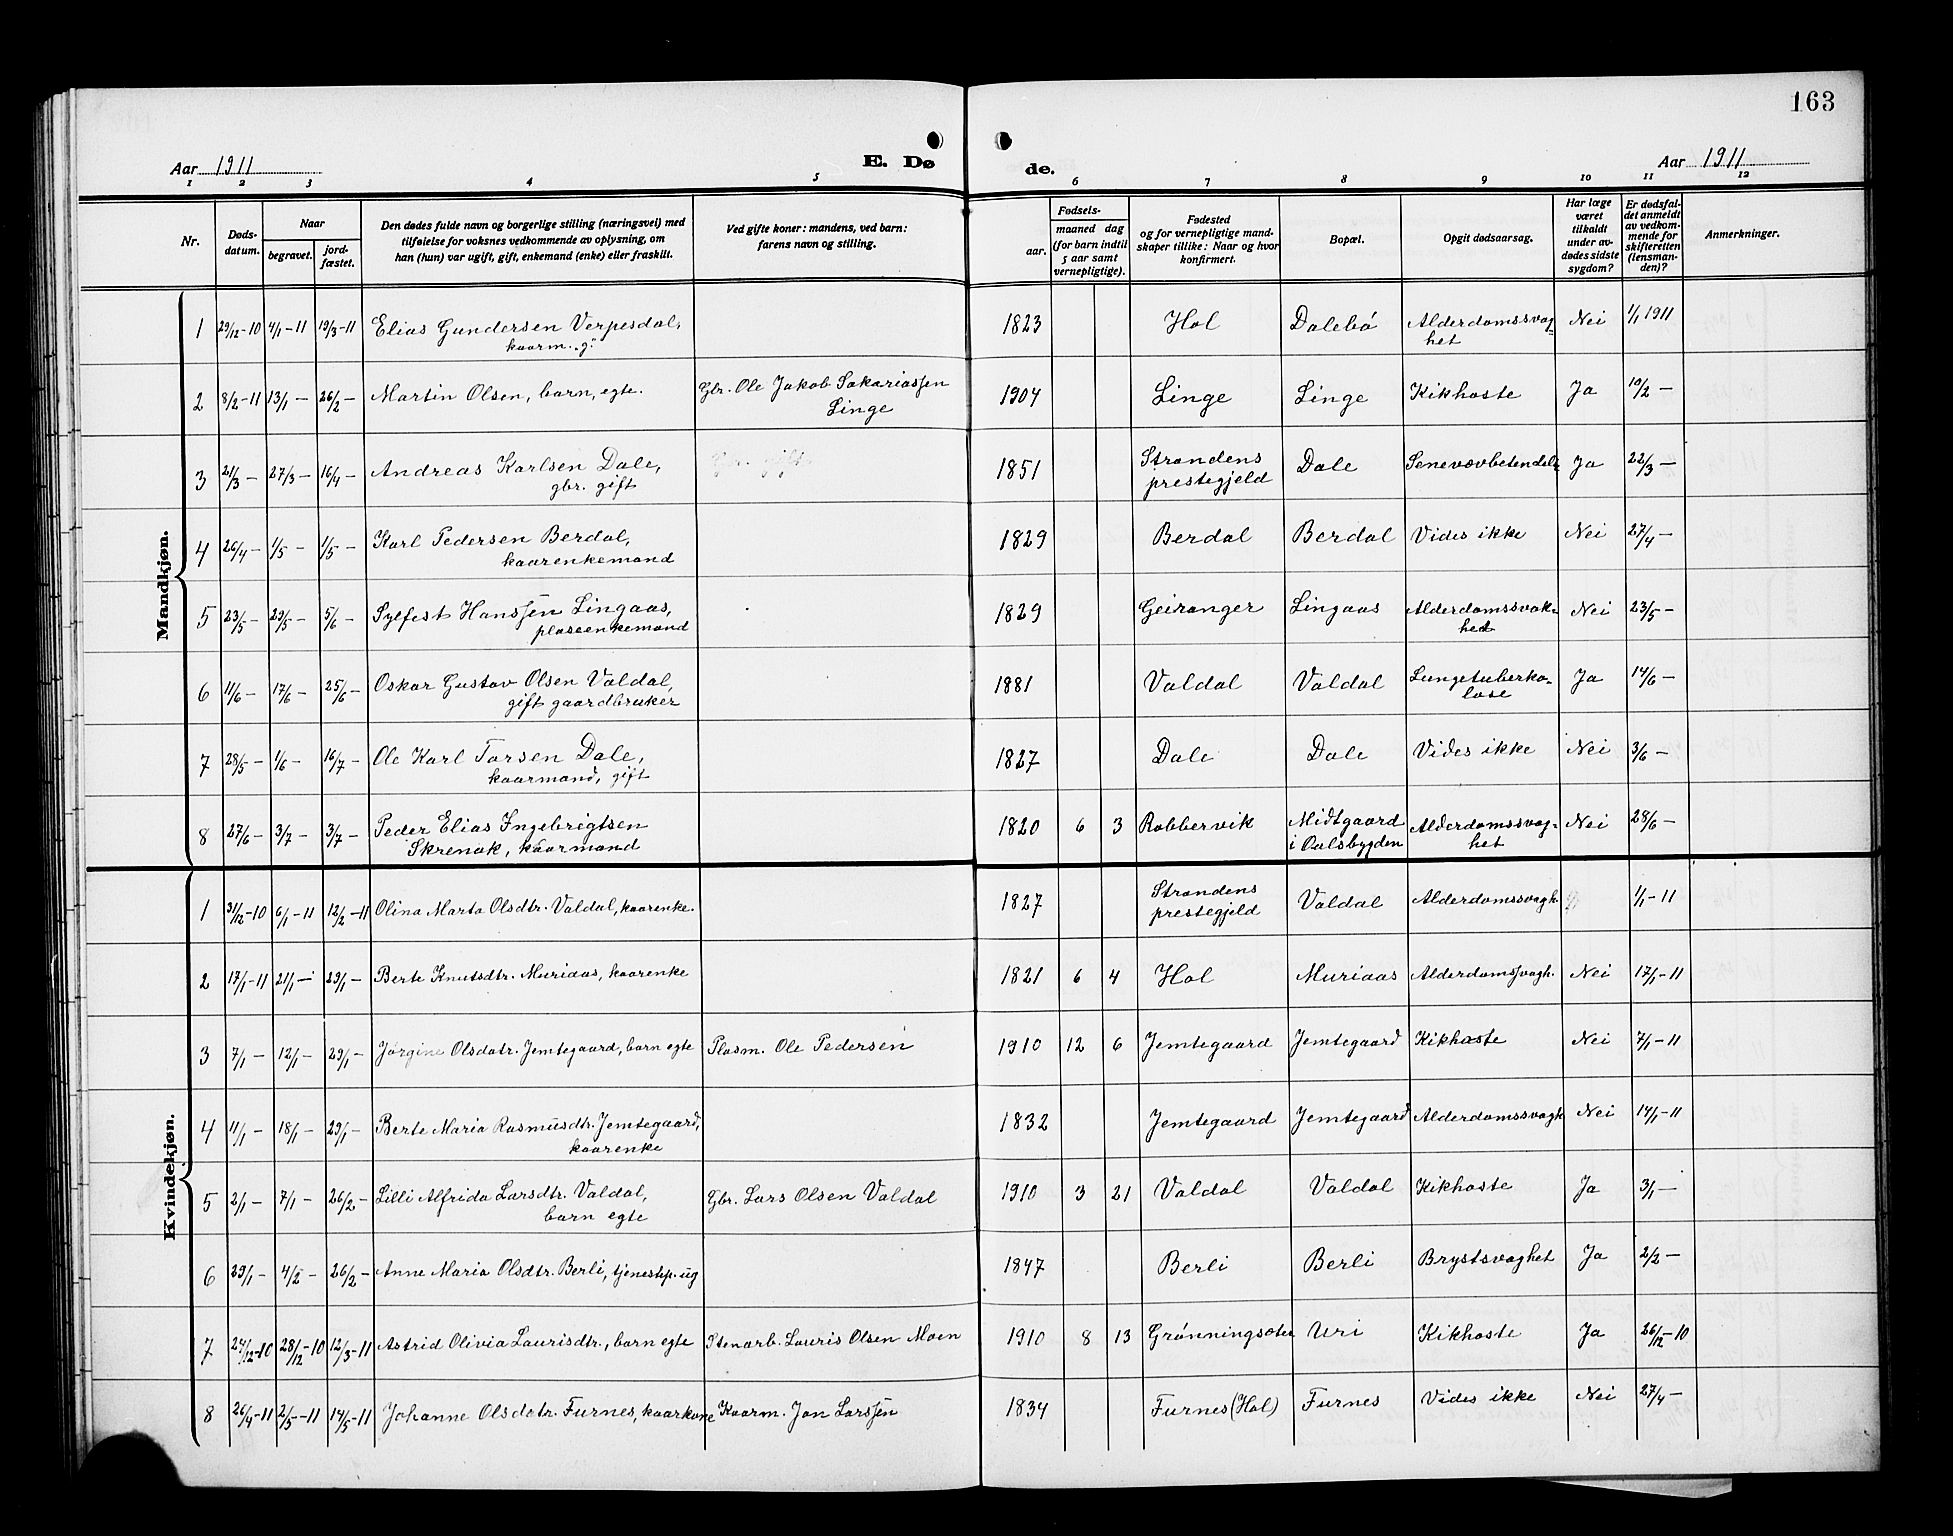 163
Aar 1911 E. Døde. Aar 1911
1 2 3 4 5 6 7 8 9 10 11 12
Nr. Døds-datum. Naar begravet. jord-fæstet. Den dødes fulde navn og borgerlige stilling (næringsvei) med tilføielse for voksnes vedkommende av oplysning, om han (hun) var ugift, gift, enkemand (enke) eller fraskilt. Ved gifte koner: mandens, ved barn: farens navn og stilling. Fødsels- aar. maaned dag (for barn indtil 5 aar samt vernepligtige). Fødested og for vernepligtige mand-skaper tillike: Naar og hvor konfirmert. Bopæl. Opgit dødsaarsag. Har læge været tilkaldt under av-dødes sidste sygdom? Er dødsfal-det anmeldt av vedkom-mende for skifteretten (lensman-den)? Anmerkninger.
Mandkjøn.
1 29/12-10 4/1-11 19/3-11 Elias Gundersen Verpesdal, kaarm. „g." 1823 Hol Dalebø Alderdomssvag-het Nei 1/1 1911
2 8/2-11 13/1 - 26/2 - Martin Olsen, barn, egte. Gbr. Ole Jakob Sakariassen Linge 1904 Linge Linge Kikhoste Ja 10/2 -
3 21/3 - 27/3 - 16/4 - Andreas Karlsen Dale, gbr. gift 1851 Strandens prestegjeld Dale Ja 22/3 -
4 26/4 - 1/5 - 1/5 - Karl Pedersen Berdal, kaarenkemand 1829 Berdal Berdal Vides ikke Nei 27/4 -
5 23/5 - 29/5 - 5/6 - Sylfest Hanssen Lingaas, plasenkemand 1829 Geiranger Lingaas Alderdomssvak-het Nei 23/5 -
6 11/6 - 17/6 - 25/6 - Oskar Gustav Olsen Valdal, gift gaardbruker 1881 Valdal Valdal Lungetuberku-lose Ja 14/6 -
7 28/5 - 1/6 - 16/7 - Ole Karl Torsen Dale, kaarmand, gift 1827 Dale Dale Vides ikke Nei 3/6 -
8 27/6 - 3/7 - 3/7 - Peder Elias Ingebrigtsen Skrenak, kaarmand 1820 6 3 Robbervik Midtgaard i Oalsbygden Alderdomssvag-het Nei 28/6 -
Kvindekjøn.
1 31/12-10 6/1-11 12/2-11 Olina Marta Olsdtr. Valdal, kaarenke. 1827 Strandens prestegjeld Valdal Alderdomssvagh. 1/1-11
2 17/1-11 21/1 - 29/1 - Berte Knutsdtr. Muriaas, kaarenke 1821 6 4 Hol Muriaas Alderdomssvagh. Nei 17/1-11
3 7/1 - 12/1 - 29/1 - Jørgine Olsdatr. Jemtegaard, barn egte Plasm. Ole Pedersen 1910 12 6 Jemtegaard Jemtegaard Kikhoste Nei 7/1-11
4 11/1 - 18/1 - 29/1 - Berte Maria Rasmusdtr. Jemtegaard, kaarenke 1832 Jemtegaard Jemtegaard Alderdomssvagh Nei 14/1-11
5 2/1 - 7/1 - 26/2 - Lilli Alfrida Larsdtr. Valdal, barn egte Gbr. Lars Olsen Valdal 1910 3 21 Valdal Valdal Kikhoste Ja 3/1 -
6 29/1 - 4/2 - 26/2 - Anne Maria Olsdtr. Berli, tjenestep. ug 1847 Berli Berli Brystsvaghet Ja 2/2 -
7 24/12-10 28/12-10 12/3-11 Astrid Olivia Laurisdtr., barn egte Stenarb. Lauris Olsen Moen 1910 8 13 Uri Kikhoste Ja 26/12-10
8 26/4-11 2/5-11 14/5-11 Johanne Olsdatr. Furnes, kaarkone Kaarm. Jon Larssen 1834 Furnes (Hol) Furnes Vides ikke Nei 27/4 -